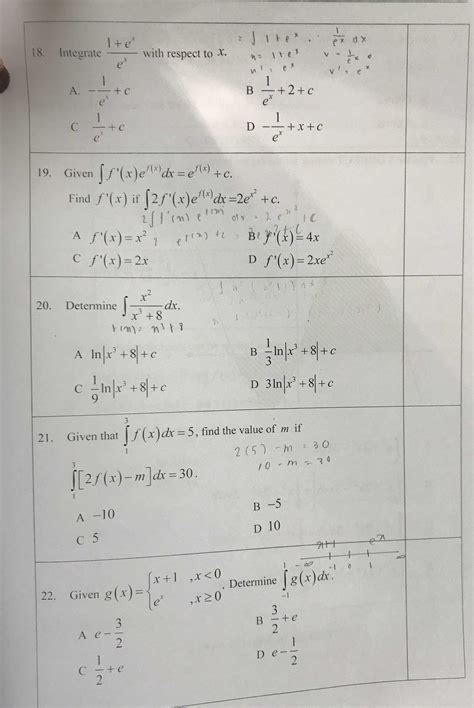 18. Integrate \frac{1+e^x}{e^x} with respect to x.
= ∫ 1+e^x · \frac{1}{e^x} dx
u = 1+e^x
u' = e^x
A. -\frac{1}{e^x}+c
B \frac{1}{e^x}+2+c
C \frac{1}{e^x}+c
D -\frac{1}{e^x}+x+c
19. Given ∫f'(x)e^{f(x)}dx=e^{f(x)}+c.
Find f'(x) if ∫2f'(x)e^{f(x)}dx=2e^{x^2}+c.
A f'(x)=x^2
B f'(x)=4x
C f'(x)=2x
D f'(x)=2xe^{x^2}
20. Determine ∫\frac{x^2}{x^3+8}dx.
A ln|x^3+8|+c
B \frac{1}{3}ln|x^3+8|+c
C \frac{1}{9}ln|x^3+8|+c
D 3ln|x^3+8|+c
21. Given that ∫_1^3 f(x)dx=5, find the value of m if
2(5) - m = 30
10 - m = 30
∫_1^3[2f(x)-m]dx=30.
A -10
B -5
C 5
D 10
x+1 e^x
-∞ -1 0 1
22. Given g(x)={x+1 ,x<0
e^x ,x≥0
, Determine ∫_{-1}^1 g(x)dx.
A e-\frac{3}{2}
B \frac{3}{2}+e
C \frac{1}{2}+e
D e-\frac{1}{2}